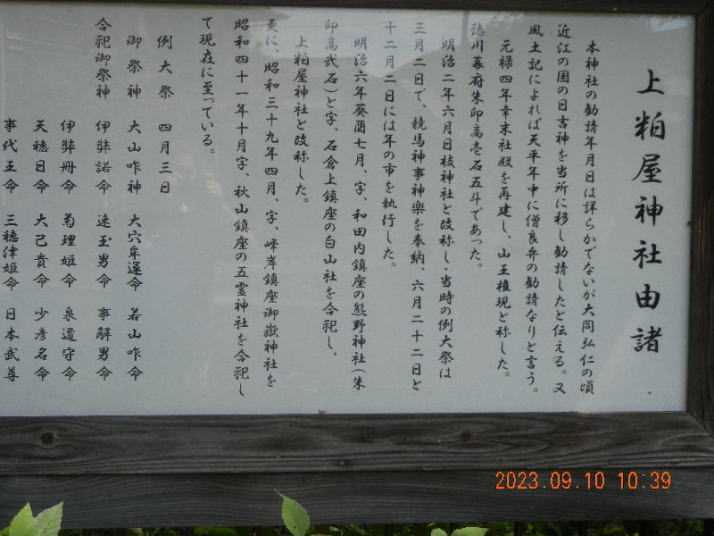 上粕屋神社由諸
本神社の勧請年月日は詳らかでないが大同弘仁の頃
近江の国の日吉神を当所に移し勧請したと伝える。又
風土記によれば天平年中に僧良弁の勧請なりと言う。
元禄四年幸末社殿を再建し、山王権現と称した。
徳川幕府朱印高壱石五斗であった。
明治二年六月日枝神社と改称し、当時の例大祭は
三月二日で、競馬神事神楽を奉納、六月二十二日と
十二月二日には年の市を執行した。
明治六年癸酉七月、字、和田内鎮座の熊野神社(朱
印高弐石)と字、石倉上鎮座の白山社を合祀し、
上粕屋神社と改称した。
更に、昭和三十九年四月、字、峰岸鎮座御嶽神社を
昭和四十一年十月字、秋山鎮座の五霊神社を合祀し
て現在に至っている。
例大祭 四月三日
御祭神 大山咋神 大穴牟遅命 若山咋命
合祀御祭神 伊弉諾命 速玉男命 事解男命
伊弉冊命 菊理姫命 泉道守命
天穂日命 大己貴命 少彦名命
事代主命 三穂津姫命 日本武尊
2023.09.10 10:39